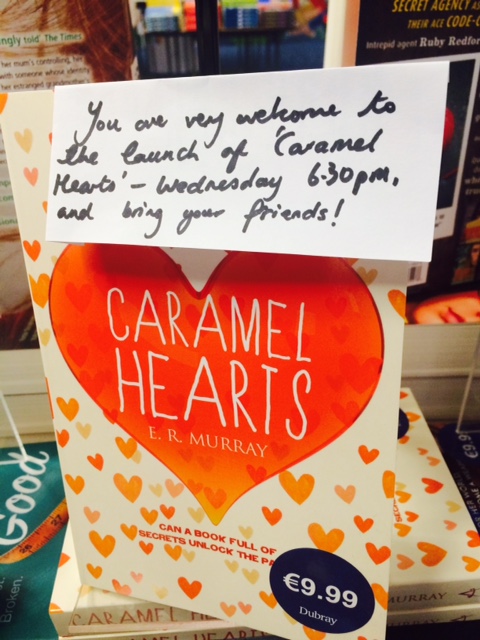 You are very welcome to
the launch of 'Caramel
Hearts' – Wednesday 6.30pm,
and bring your friends!
CARAMEL
HEARTS
E. R. MURRAY
CAN A BOOK FULL OF
SECRETS UNLOCK THE
€9.99
Dubray
told' The Times
her mum's controlling, her
with someone whose identity
her estranged
SECRET AGENCY
THEIR ACE CODE-
Intrepid agent Ruby
Good
Broken.
€9.99
CARAMEL
MURRAY
CARAMEL HEARTS